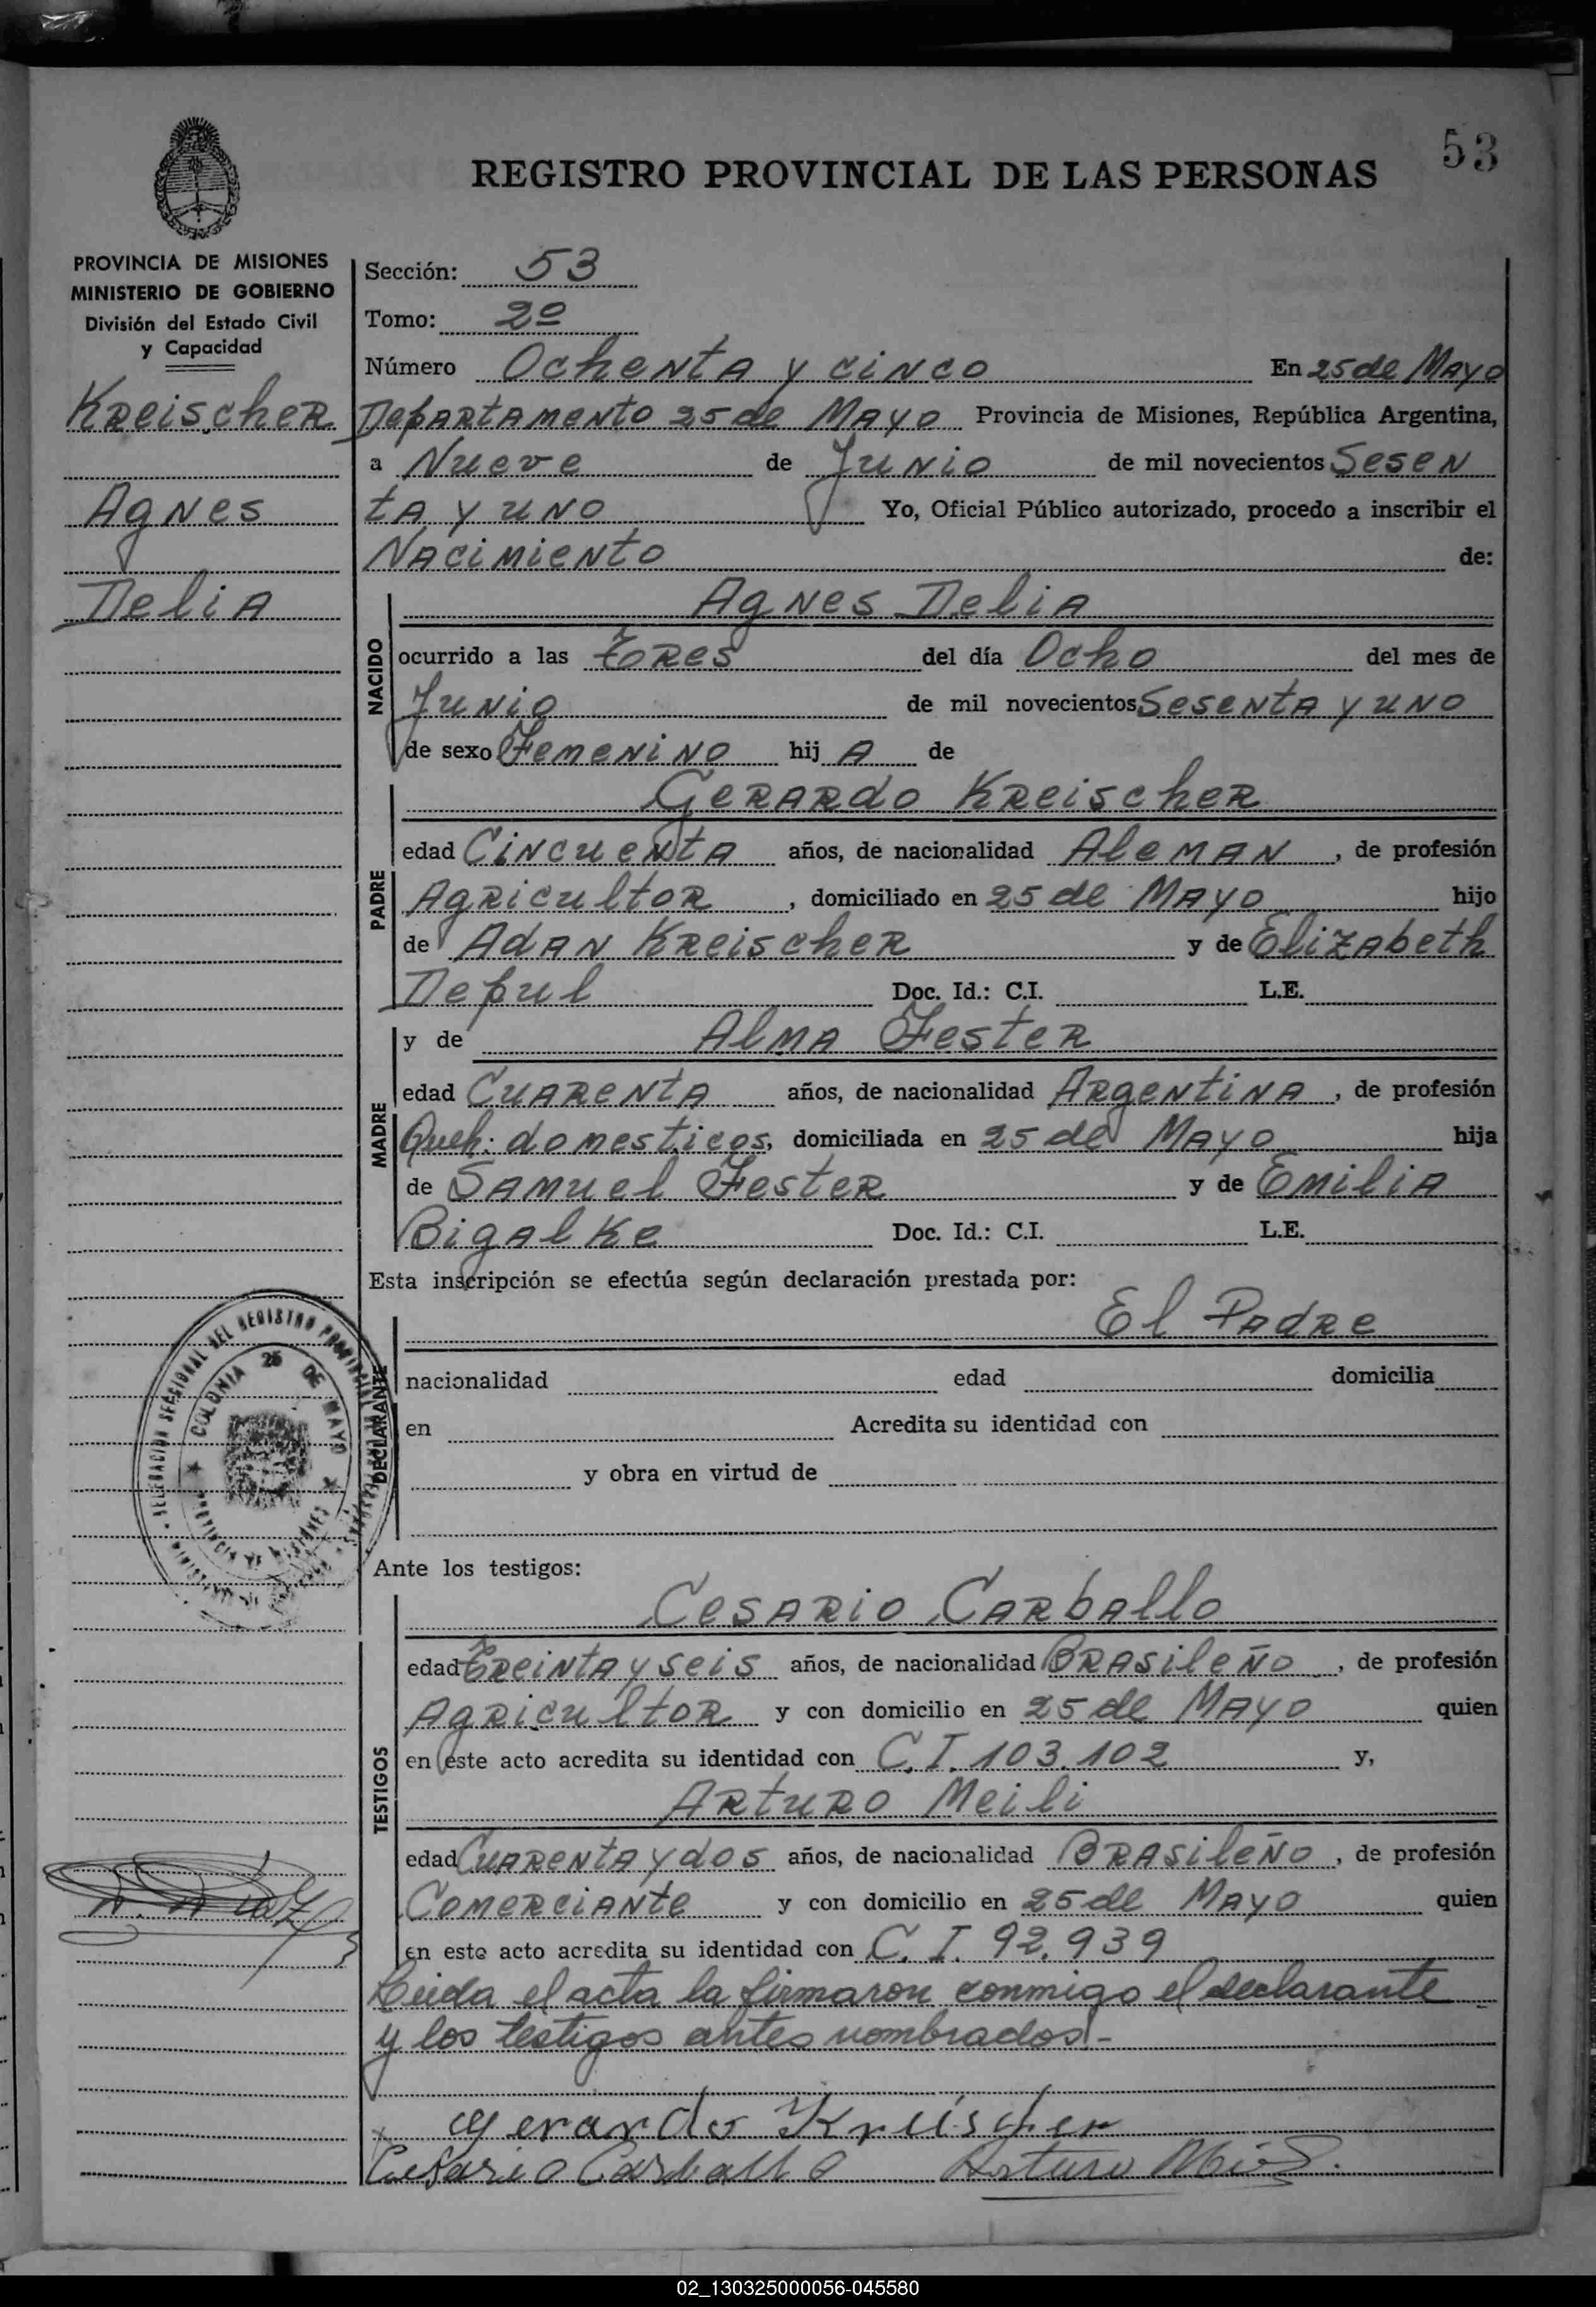 53
REGISTRO PROVINCIAL DE LAS PERSONAS
PROVINCIA DE MISIONES
MINISTERIO DE GOBIERNO
División del Estado Civil
y Capacidad
Kreischer
Agnes
Delia
Sección: 53
Tomo: 2º
Número Ochenta y cinco En 25 de Mayo
Departamento 25 de Mayo Provincia de Misiones, República Argentina,
a Nueve de Junio de mil novecientos Sesen
ta y uno Yo, Oficial Público autorizado, procedo a inscribir el
Nacimiento de:
NACIDO
Agnes Delia
ocurrido a las tres del día Ocho del mes de
Junio de mil novecientos Sesenta y uno
de sexo Femenino hij a de
PADRE
Gerardo Kreischer
edad Cincuenta años, de nacionalidad Aleman, de profesión
Agricultor, domiciliado en 25 de Mayo hijo
de Adan Kreischer y de Elizabeth
Depul Doc. Id.: C.I. L.E.
MADRE
y de Alma Fester
edad Cuarenta años, de nacionalidad Argentina, de profesión
Queh. domesticos, domiciliada en 25 de Mayo hija
de Samuel Fester y de Emilia
Bigalke Doc. Id.: C.I. L.E.
Esta inscripción se efectúa según declaración prestada por:
DECLARANTE
El Padre
nacionalidad edad domicilia
en Acredita su identidad con
y obra en virtud de
COLONIA 25 DE MAYO
PROVINCIA DE MISIONES
Ante los testigos:
TESTIGOS
Cesario Carballo
edad Treinta y seis años, de nacionalidad Brasileño, de profesión
Agricultor y con domicilio en 25 de Mayo quien
en este acto acredita su identidad con C. I. 103.102 y,
Arturo Meili
edad Cuarenta y dos años, de nacionalidad Brasileño, de profesión
Comerciante y con domicilio en 25 de Mayo quien
en este acto acredita su identidad con C. I. 92.939
Leida el acta la firmaron conmigo el declarante
y los testigos antes nombrados.-
x Gerardo Kreischer
Cesario Carballo Arturo
02_130325000056-045580